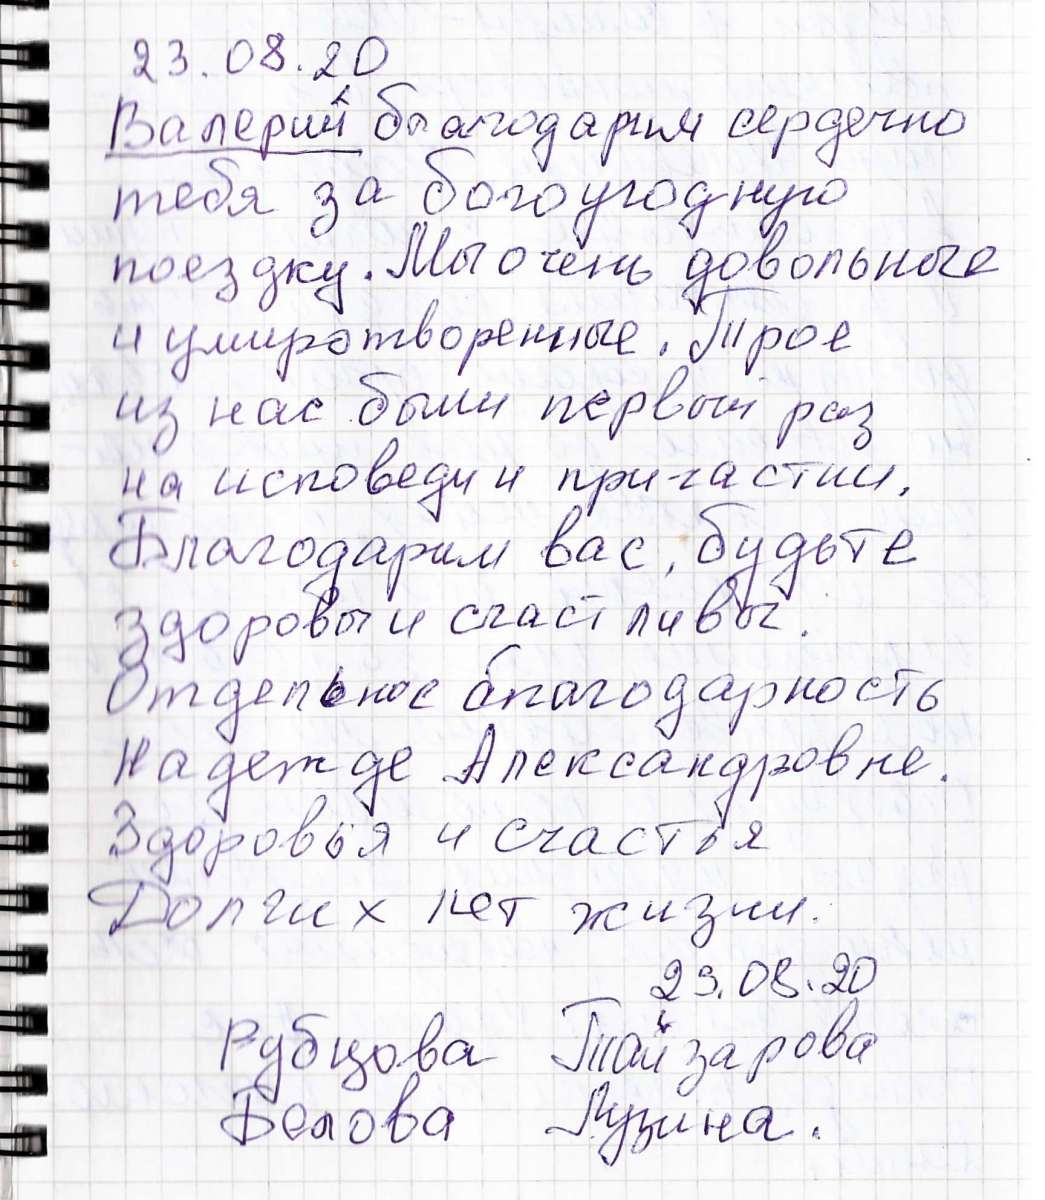 23.08.20
Валерий благодарим сердечно
тебя за богоугодную
поездку. Мы очень довольные
и умиротворенные. Трое
из нас были первый раз
на исповеди и причастии.
Благодарим вас, будьте
здоровы и счастливы.
Отдельное благодарность
Надежде Александровне.
Здоровья и счастья
Долгих лет жизни.
23.08.20
Рубцова Тайзарова
Белова Лузина.